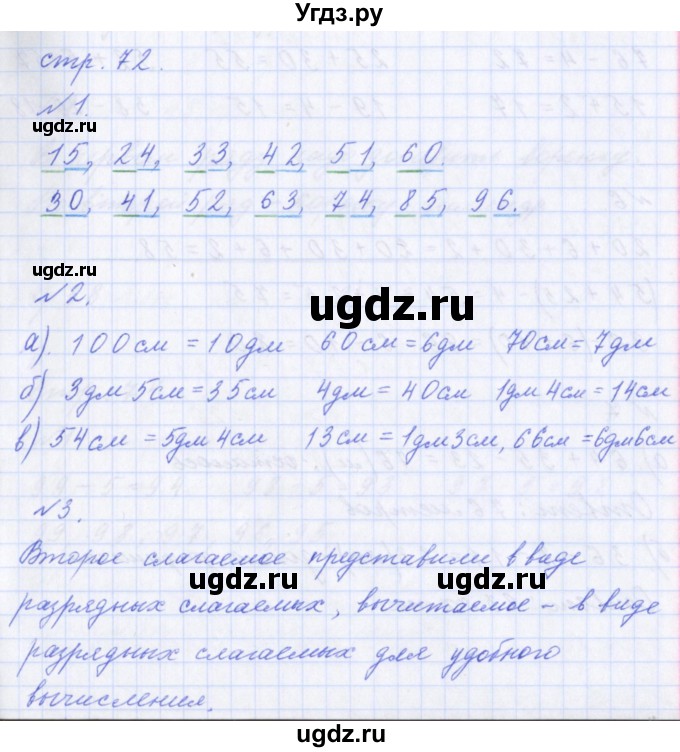 Угдз.ру
стр. 72.
№1.
ugdz.ru
15, 24, 33, 42, 51, 60.
30, 41, 52, 63, 74, 85, 96.
ugdz.ru
№2.
ugdz.ru
а). 100см = 10дм 60см = 6дм 70см = 7дм
б) 3дм 5см = 35см 4дм = 40см 1дм 4см = 14см
в) 54см = 5дм 4см 13см = 1дм3см, 66см = 6дм6см
№3.
ugdz.ru
Второе слагаемое представили в виде
ugdz.ru
разрядных слагаемых, вычитаемое – в виде
разрядных слагаемых для удобного
вычисления.
ugdz.ru ugdz.ru